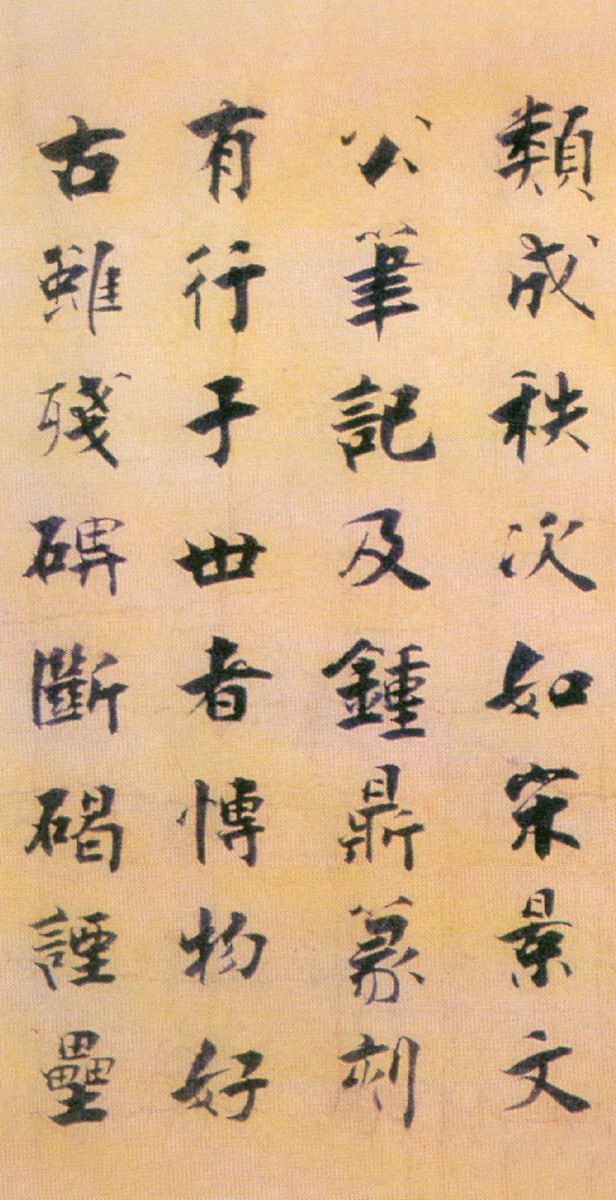 類成秩次如宋景文
公筆記及鍾鼎篆刻
有行于丗者愽物好
古雖殘碑斷碣諲壘